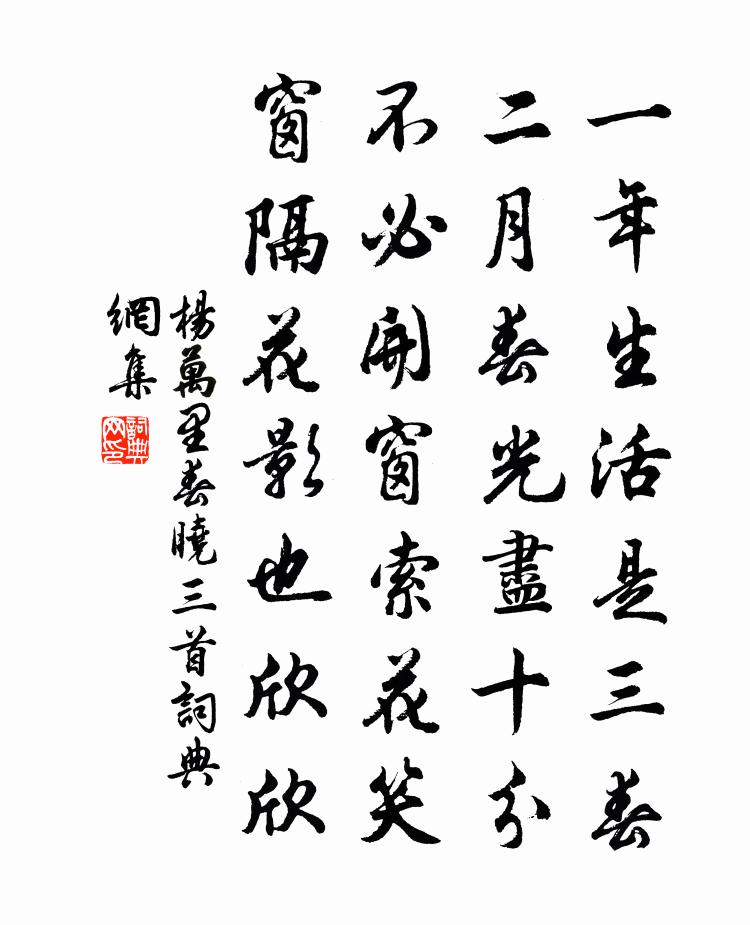 一年生活是三春
二月春光盡十分
不必開窗索花笑
窗隔花影也欣欣
楊萬里春曉三首詞典
網集
詞典
网印